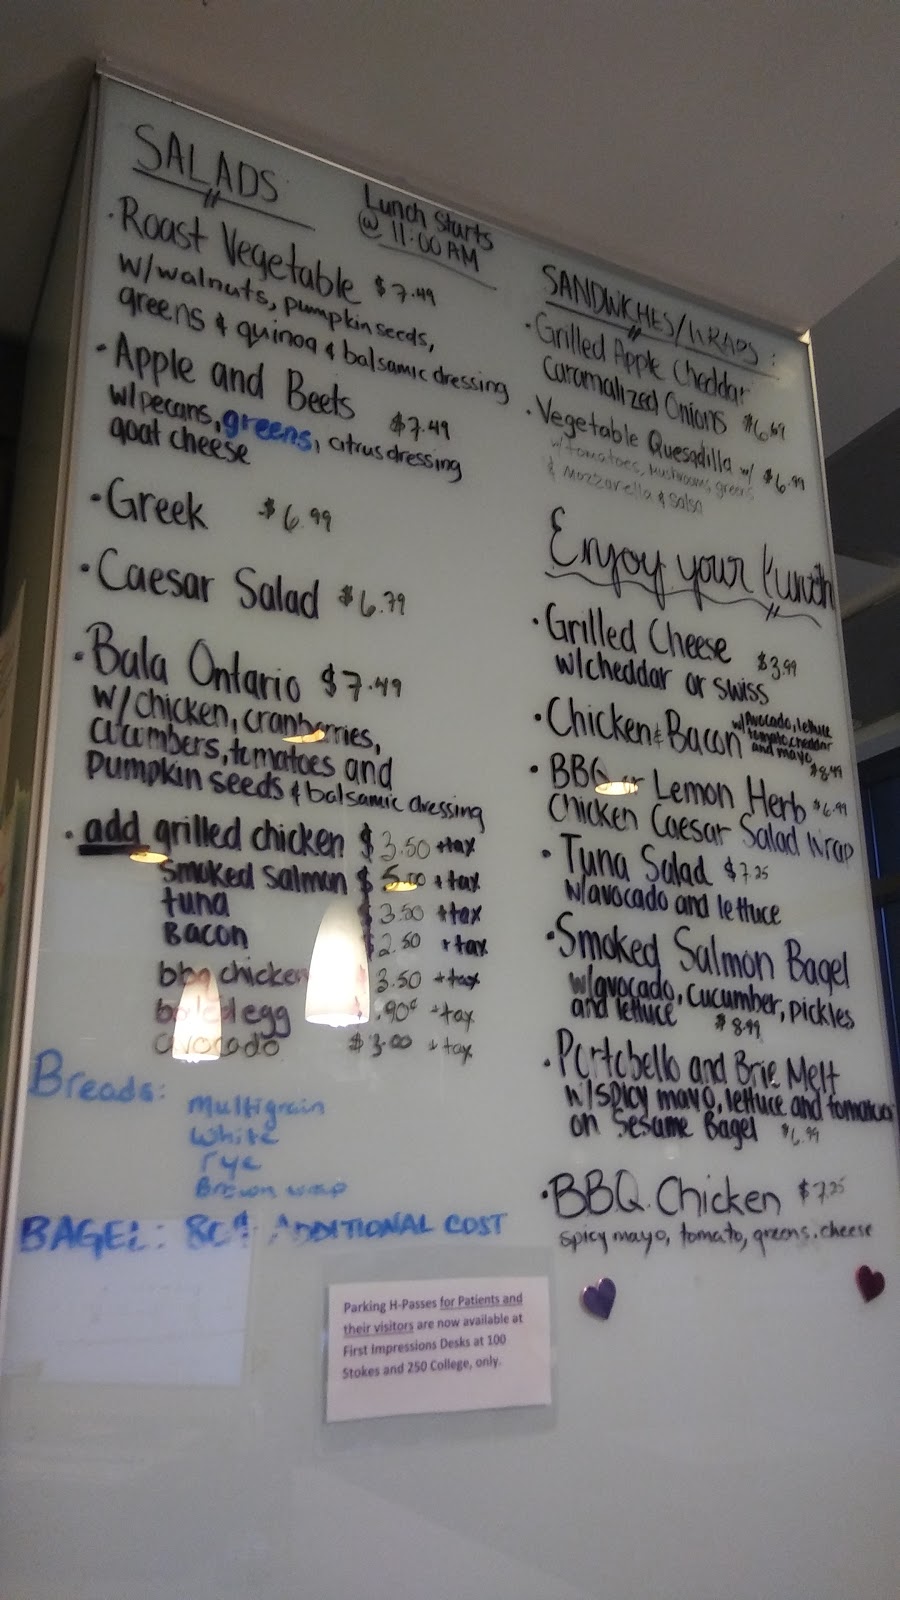 SALADS
Lunch Starts
@ 11:00 AM
· Roast Vegetable $7.49
w/walnuts, pumpkin seeds,
greens & quinoa & balsamic dressing
· Apple and Beets $7.49
w/pecans, greens, citrus dressing
goat cheese
· Greek $6.99
· Caesar Salad $6.79
· Bala Ontario $7.49
w/chicken, cranberries,
cucumbers, tomatoes and
pumpkin seeds & balsamic dressing
· add grilled chicken $3.50 +tax
smoked salmon $5.00 +tax
tuna $3.50 +tax
Bacon $2.50 +tax
bbq chicken 3.50 +tax
boiled egg .90¢ +tax
avocado $3.00 +tax
Breads:
Multigrain
White
rye
Brown wrap
BAGEL: 80¢ ADDITIONAL COST
SANDWICHES/WRAPS:
· Grilled Apple Cheddar
Caramalized Onions $6.69
· Vegetable Quesadilla w/ $6.99
w/tomatoes, mushrooms, greens
& mozzarella & salsa
Enjoy your lunch
· Grilled Cheese $3.99
w/cheddar or swiss
· Chicken & Bacon w/Avocado, lettuce
tomato, cheddar
and mayo
$8.49
· BBQ or Lemon Herb $6.99
Chicken Caesar Salad Wrap
· Tuna Salad $7.25
w/avocado and lettuce
· Smoked Salmon Bagel
w/avocado, cucumber, pickles
and lettuce $8.99
· Portobello and Brie Melt
w/spicy mayo, lettuce and tomatoes
on Sesame Bagel $6.99
· BBQ Chicken $7.25
spicy mayo, tomato, greens, cheese
Parking H-Passes for Patients and
their visitors are now available at
First Impressions Desks at 100
Stokes and 250 College, only.